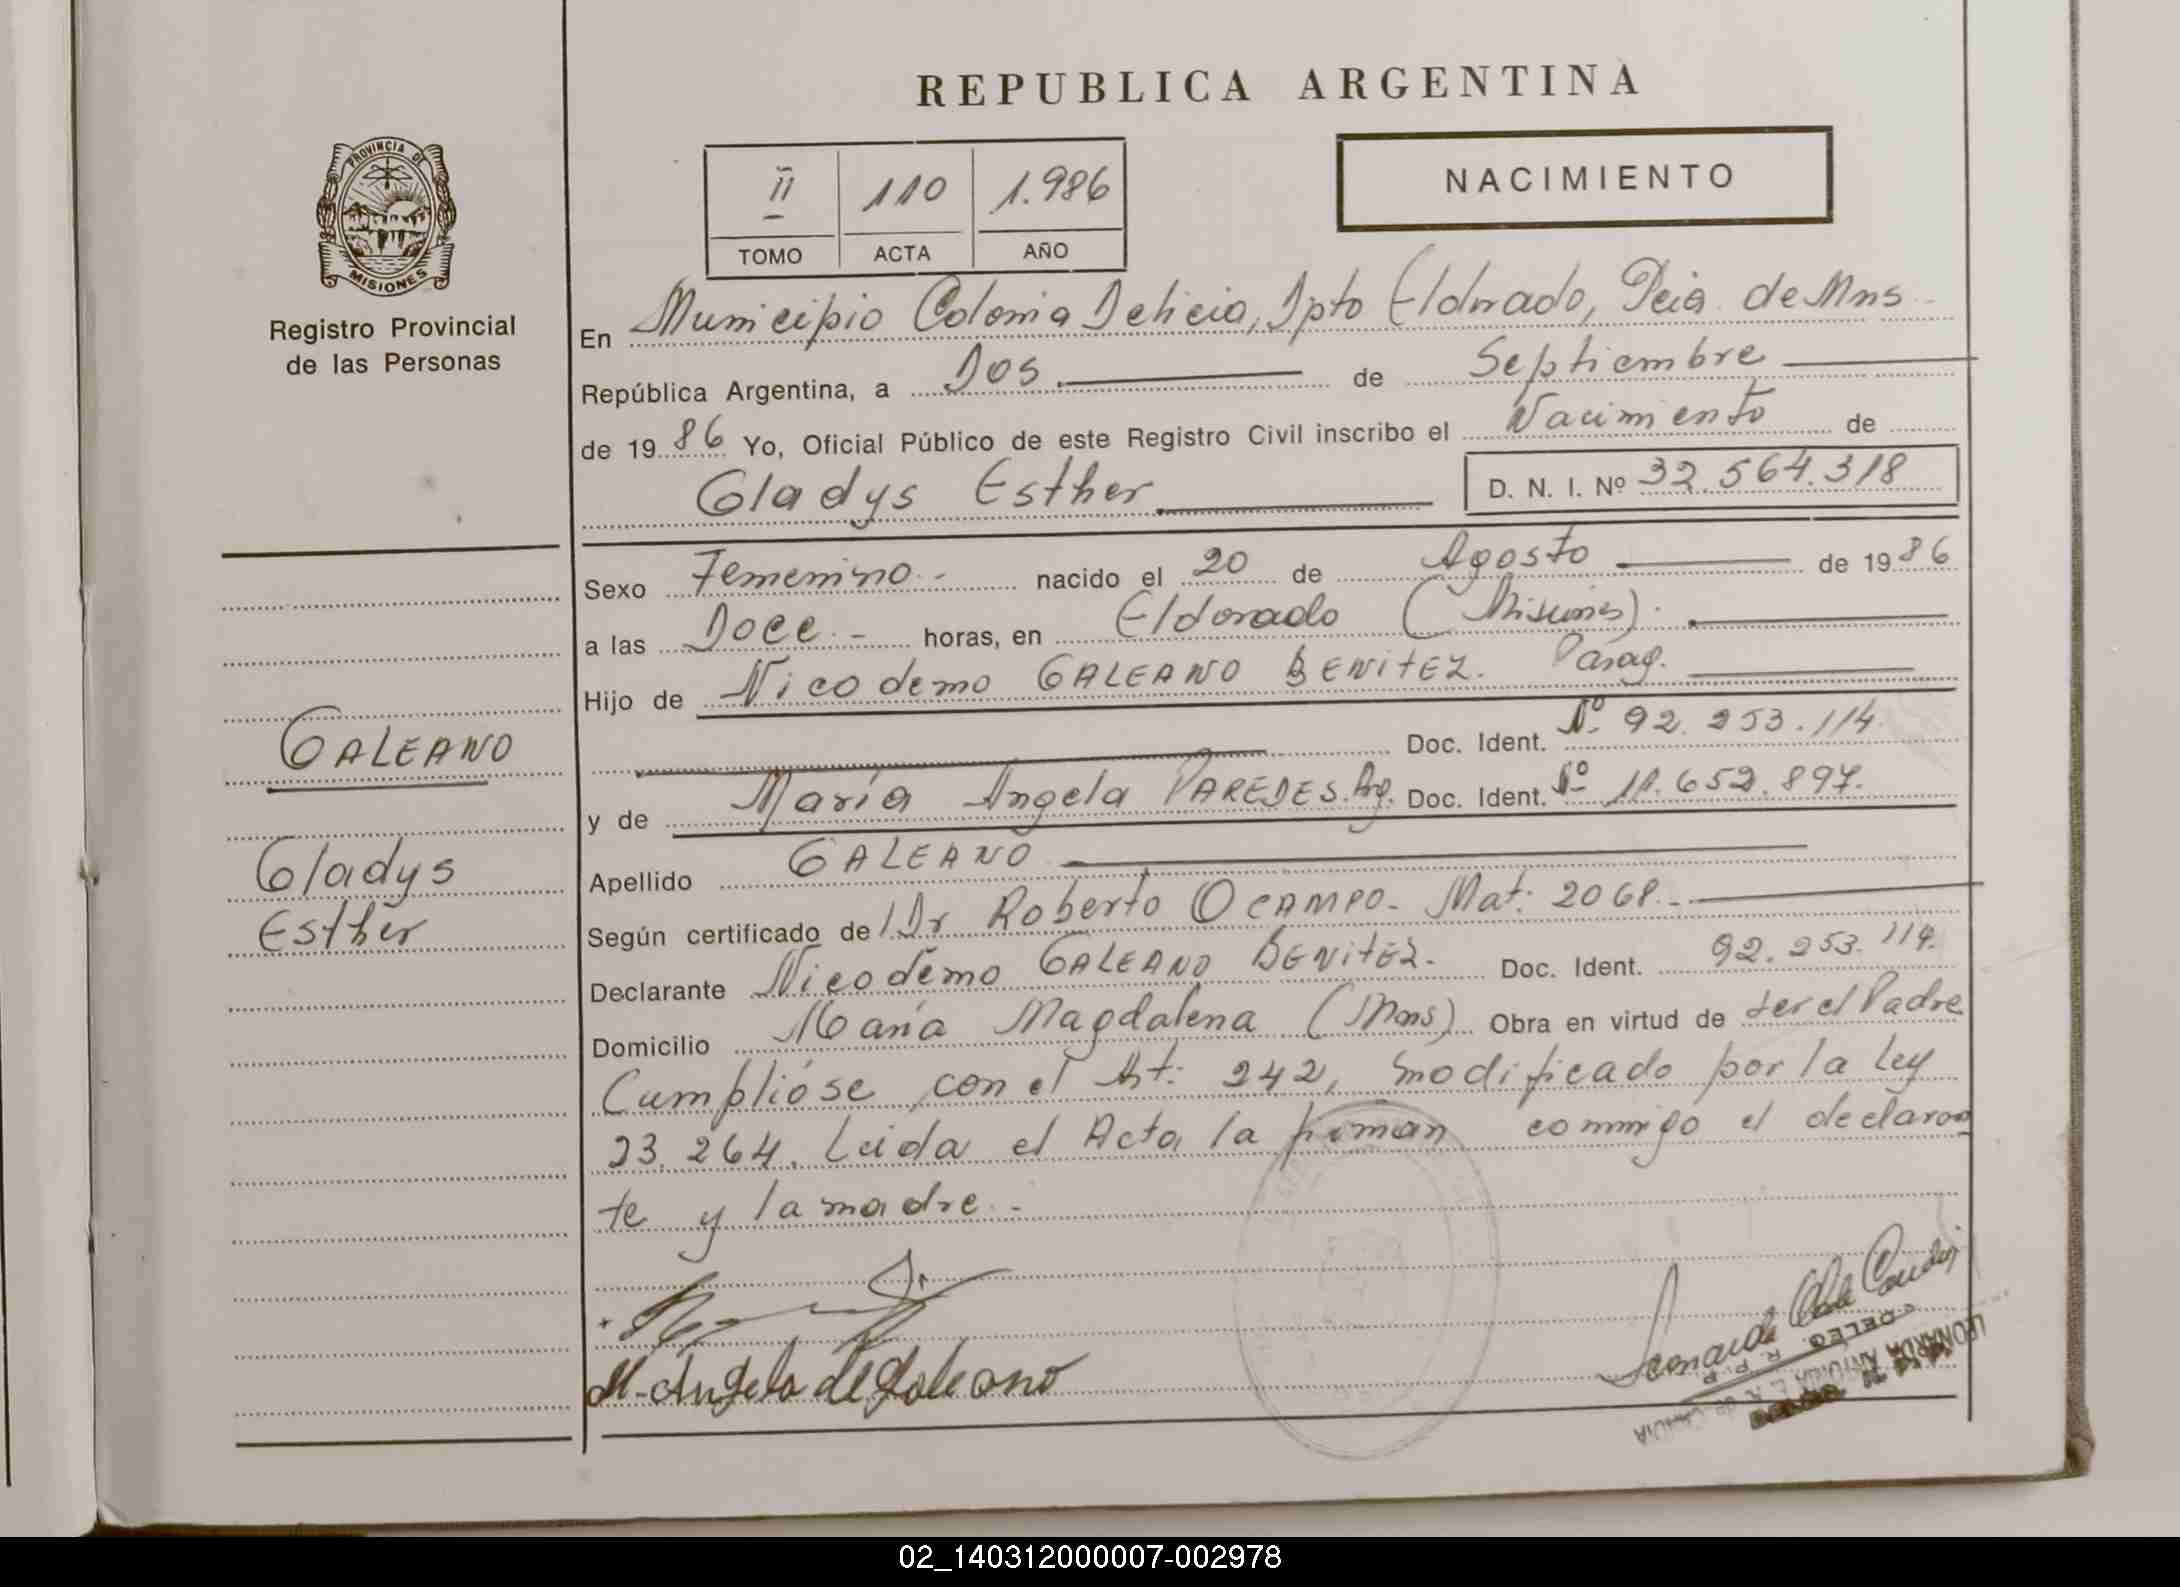 REPUBLICA ARGENTINA
PROVINCIA DE
MISIONES
Registro Provincial
de las Personas
II 110 1.986
TOMO ACTA AÑO
NACIMIENTO
En Municipio Colonia Delicia, Dpto Eldorado, Pcia. de Mns
República Argentina, a Dos de Septiembre
de 1986 Yo, Oficial Público de este Registro Civil inscribo el Nacimiento de
Gladys Esther D. N. I. Nº 32.564.318
Sexo Femenino.- nacido el 20 de Agosto de 1986
a las Doce.- horas, en Eldorado (Misiones).
Hijo de Nicodemo GALEANO BENITEZ. Parag.
Doc. Ident. Nº 92.253.114.
y de María Angela PAREDES. Arg. Doc. Ident. Nº 11.652.897.
Apellido GALEANO
Según certificado de Dr Roberto OCAMPO- Mat: 2068.-
Declarante Nicodemo GALEANO BENITEZ. Doc. Ident. 92.253.114.
Domicilio María Magdalena (Mns) Obra en virtud de ser el Padre
Cumplióse con el Art: 242, modificado por la Ley
23.264. Leida el Acta la firman conmigo el declaran
te y la madre.-
GALEANO
Gladys
Esther
M. Angela de Galeano
DELEG. R. P. P.
02_140312000007-002978